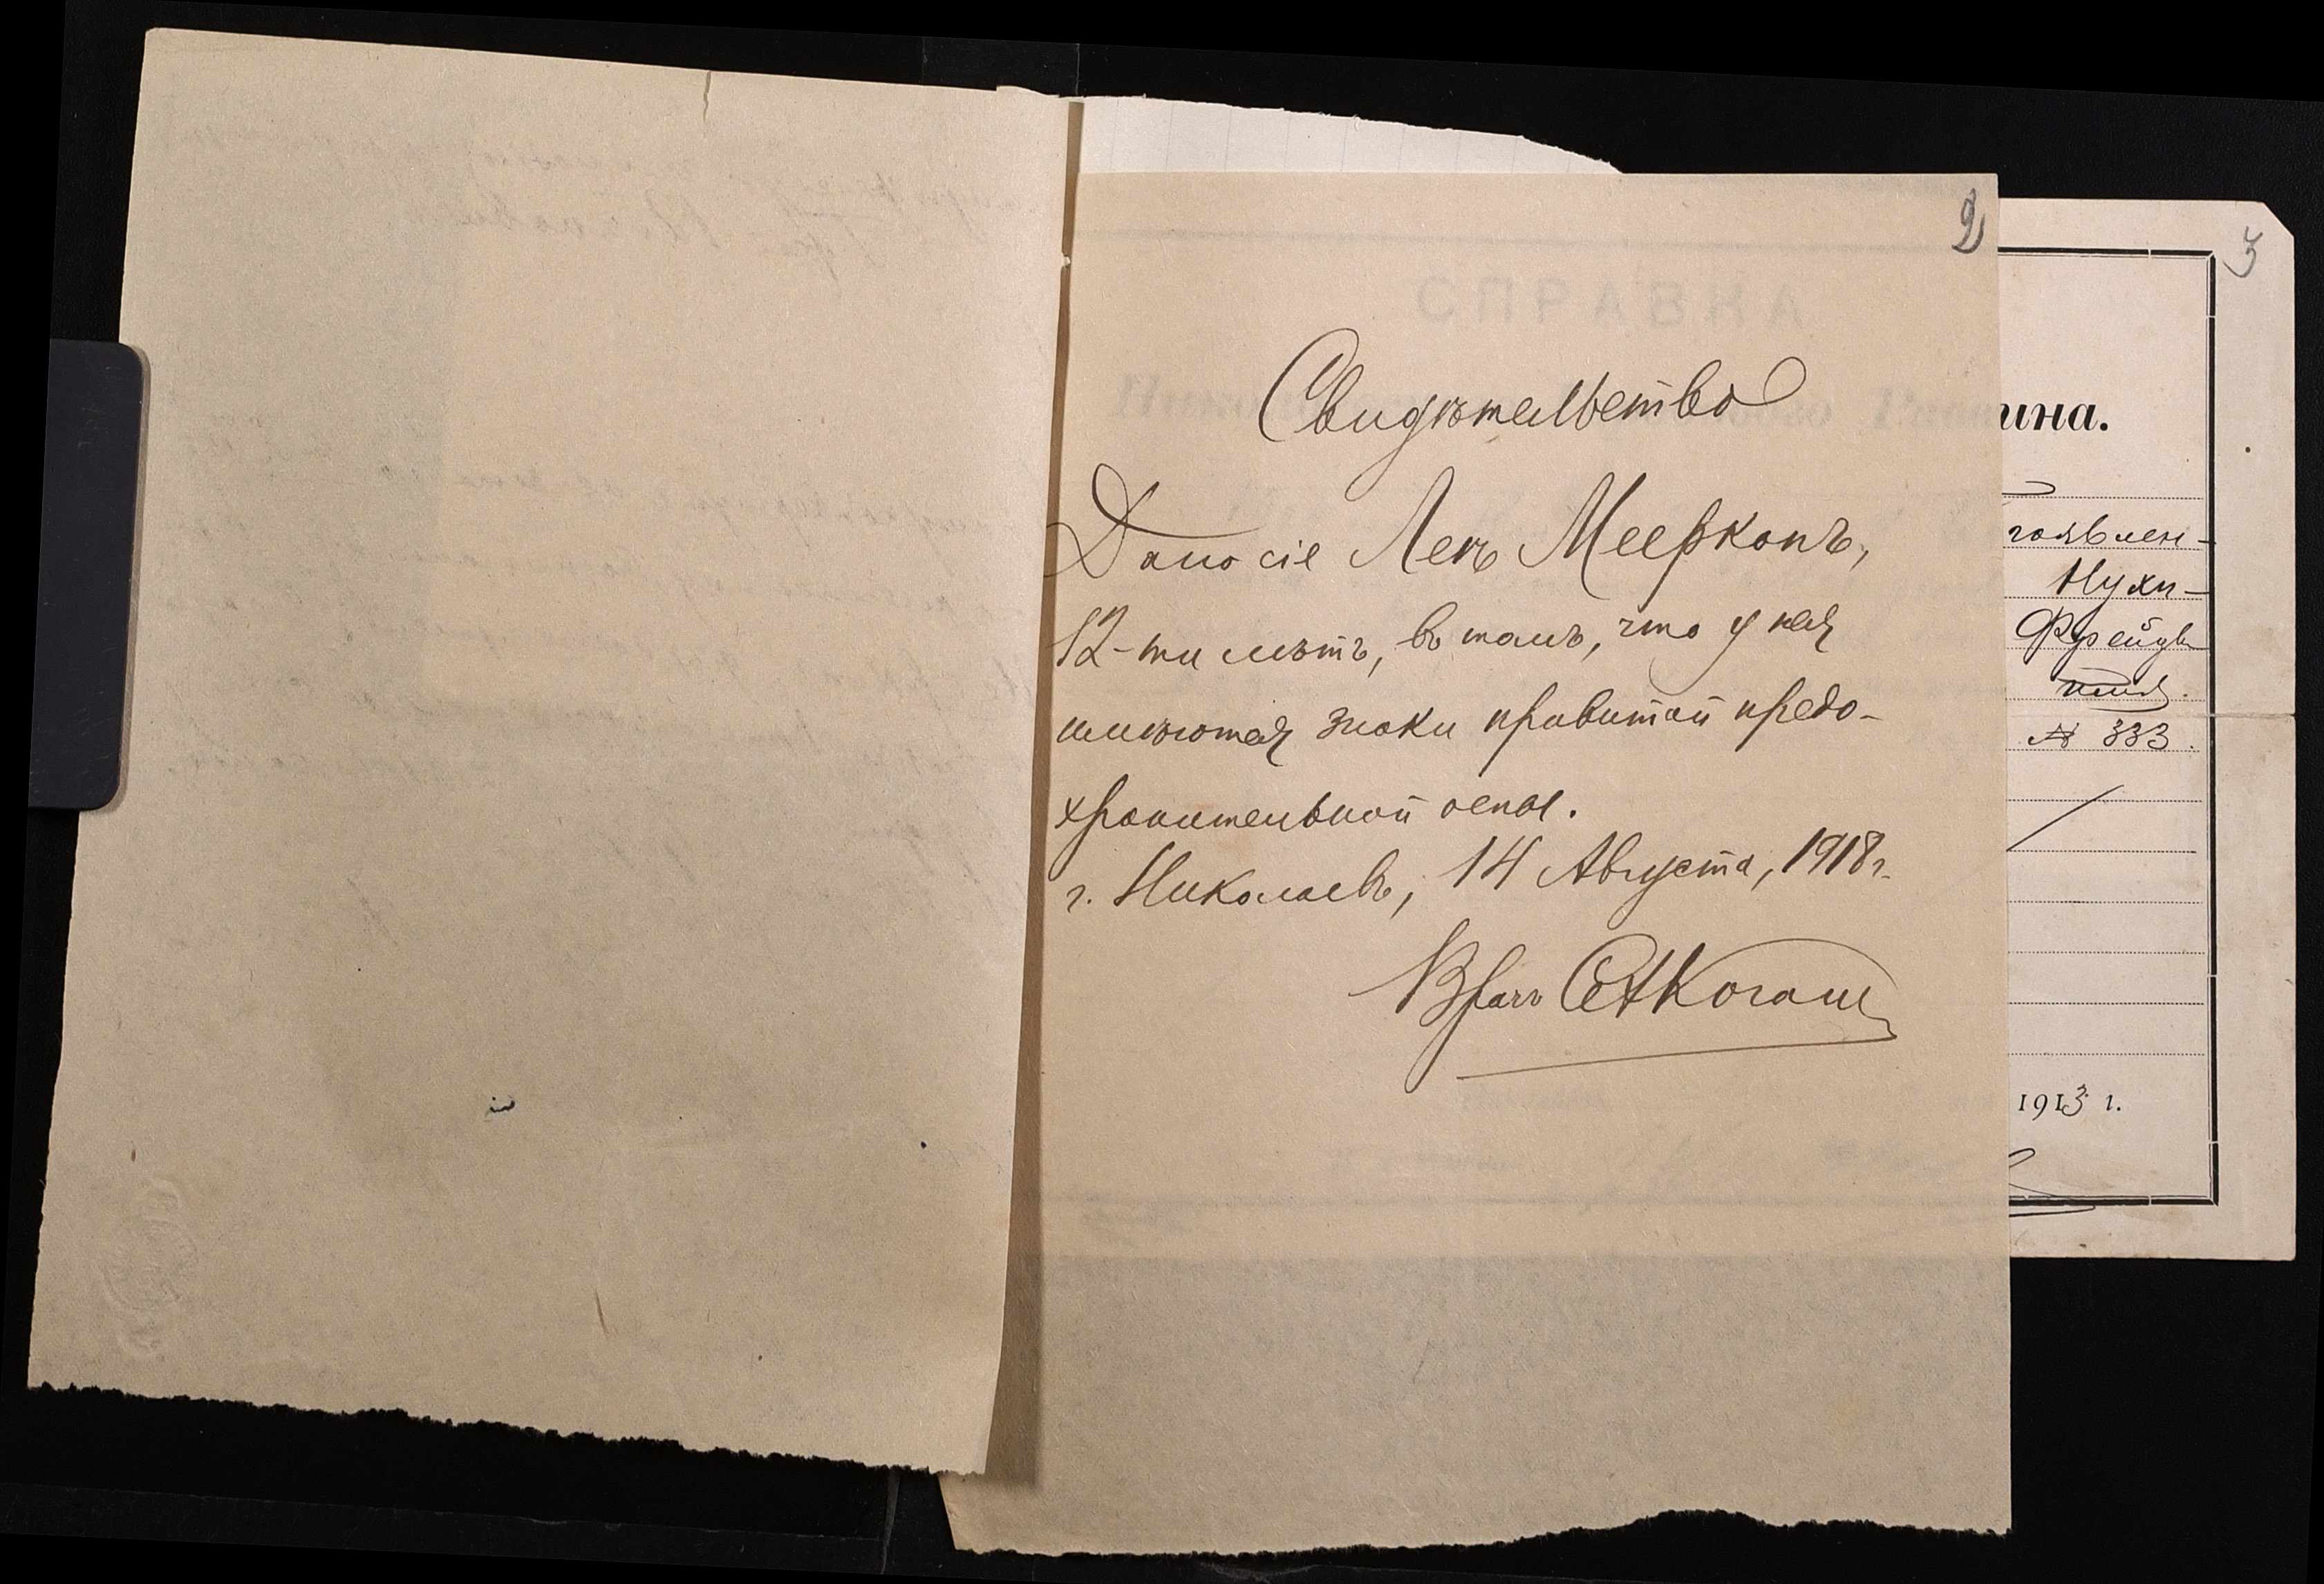 2
Свидѣтельство
Дано сіе Леѣ Мееркопъ,
12-ти лѣтъ, въ томъ, что у нея
имѣются знаки привитой предо-
хранительной оспы.
г. Николаевъ, 14 Августа, 1918 г.
Врачъ Коганъ
СПРАВКА
3
ина.
гоявлен-
Нухи-
Фрейды
№ 333.
1913 г.